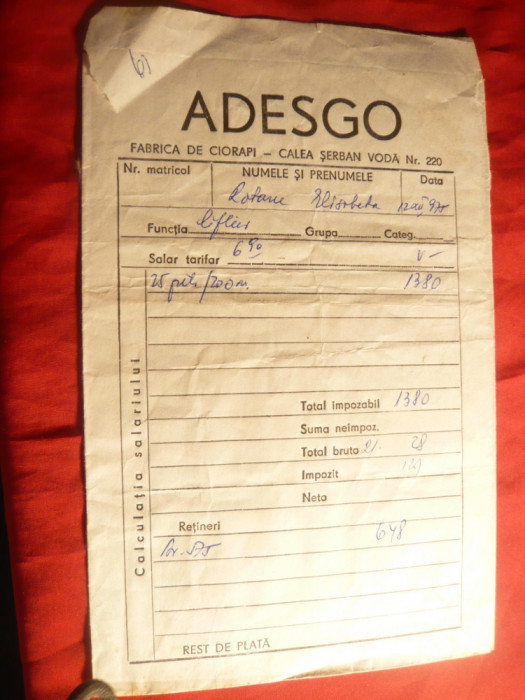 61
ADESGO
FABRICA DE CIORAPI – CALEA ȘERBAN VODĂ Nr. 220
Nr. matricol NUMELE ȘI PRENUMELE Data
Elisabeta
Funcția Grupa Categ.
Salar tarifar 6 90 V-
1380
Calculația salariului
Total impozabil 1380
Suma neimpoz.
Total bruto 21.- 28
Impozit
Neto
Rețineri 648
REST DE PLATĂ